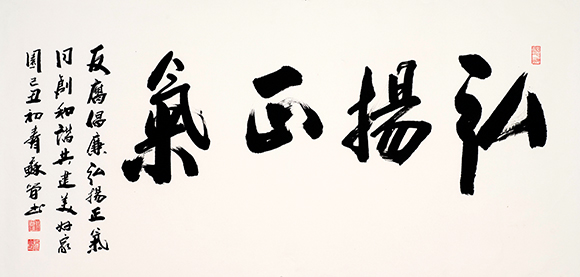 弘揚正氣
反腐倡廉弘揚正氣
同創和諧共建美好家
園己丑初春